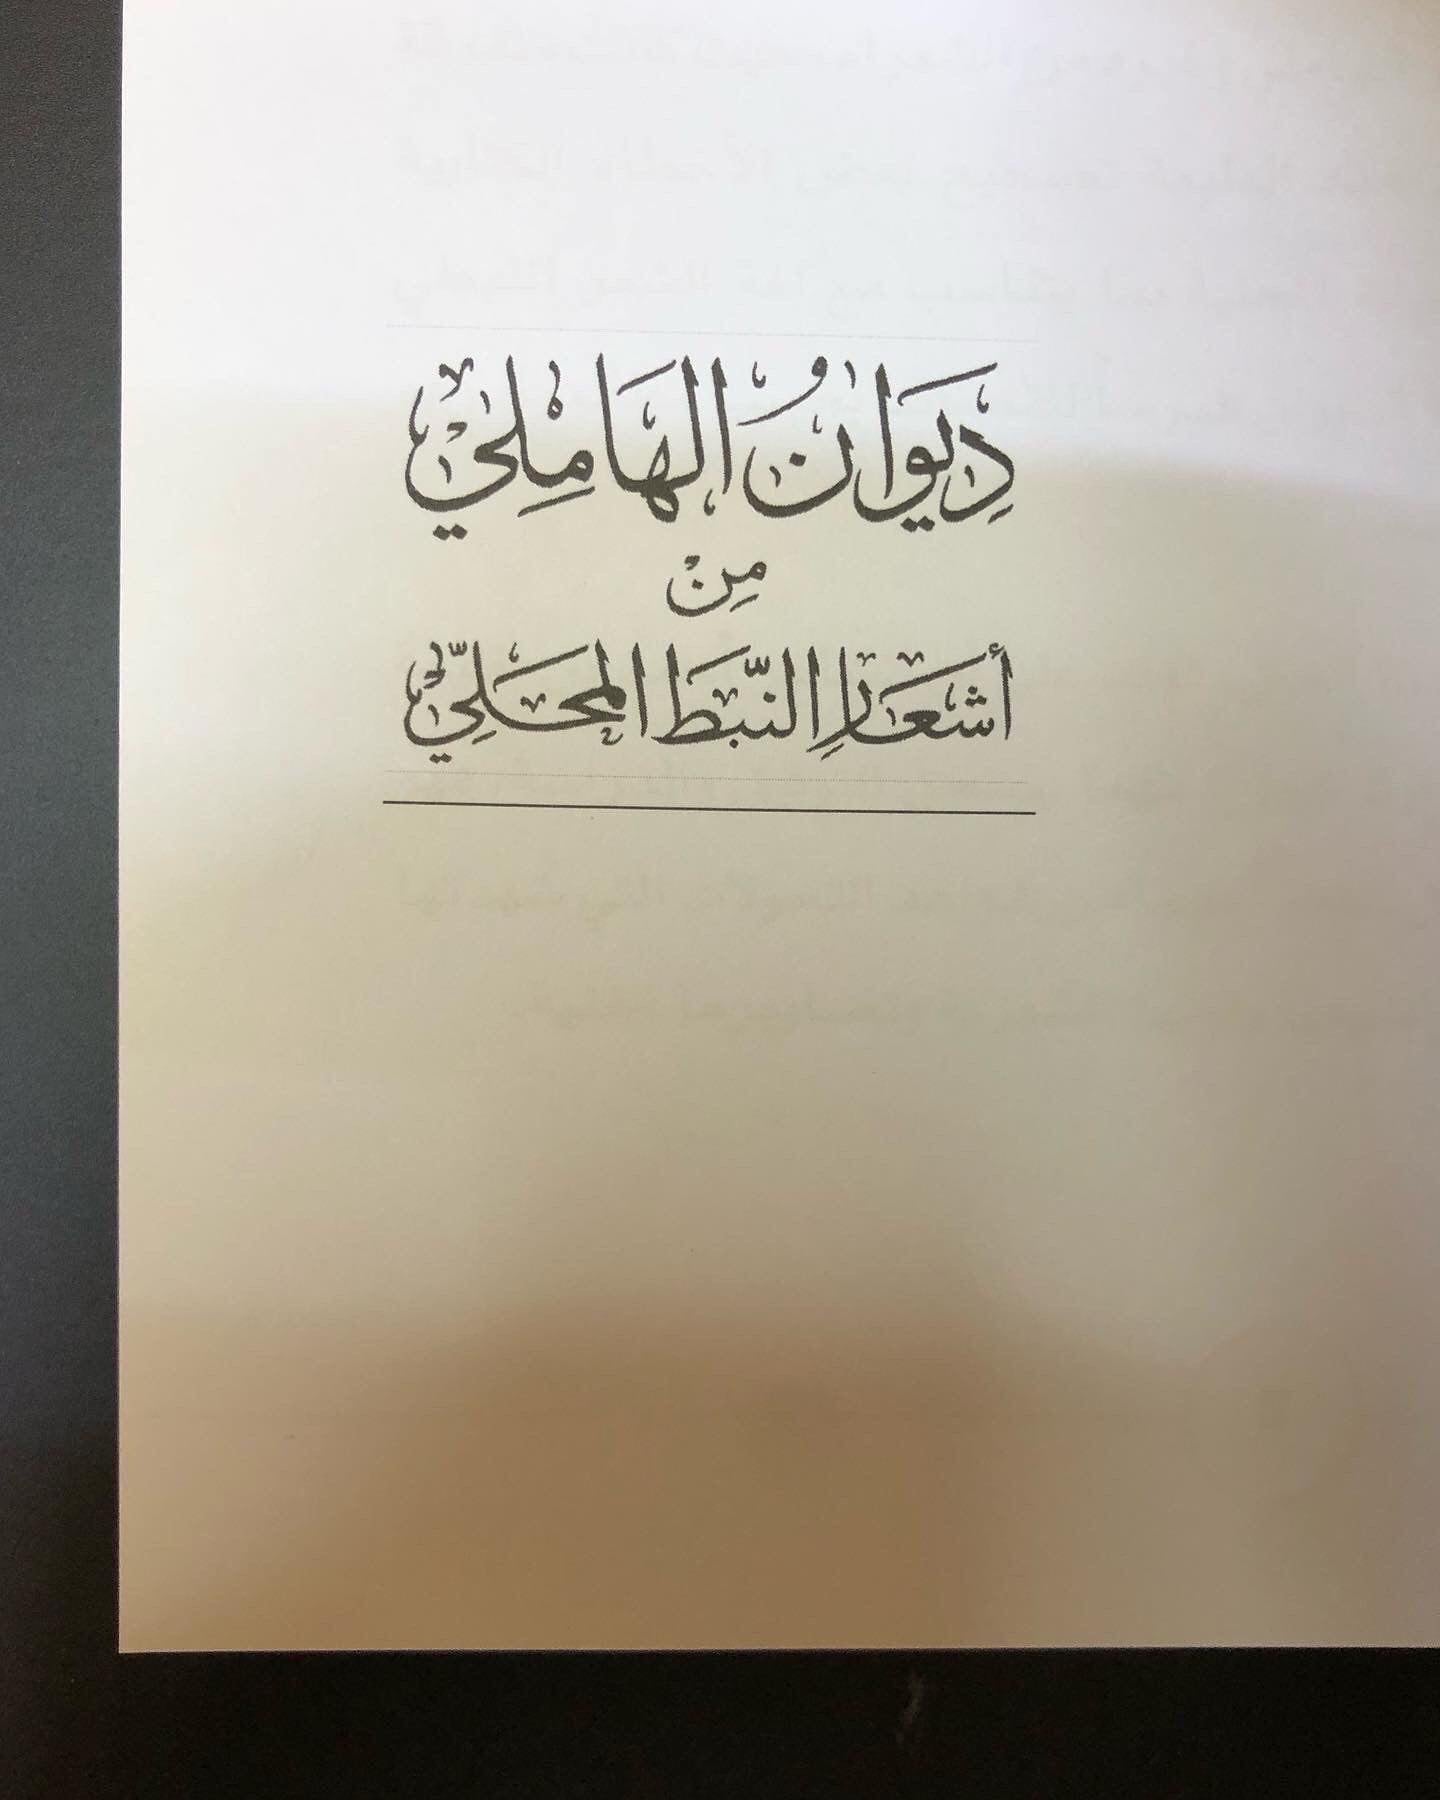 دِيوَانُ الهَامِلِيْ
مِنْ
أَشعَارِ النَّبَطِ المحَلِيّْ